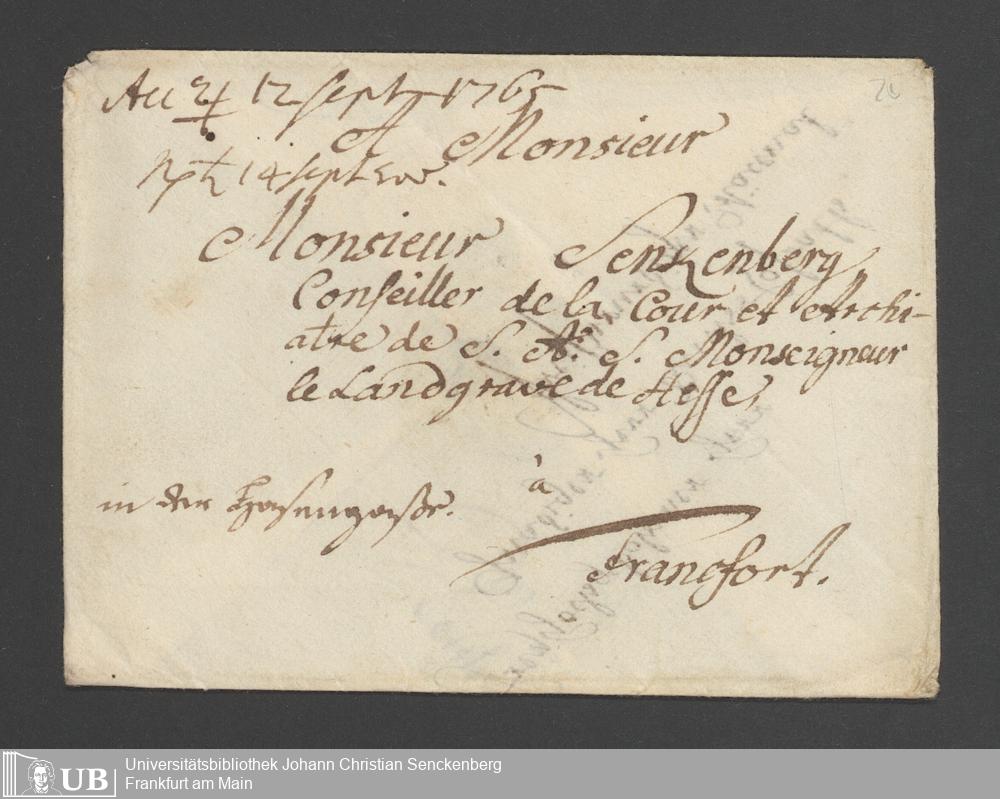 Acc ♃ 12 Sept 1765
A Monsieur
♄ 14 Sept
Monsieur Senkenberg
Conseiller de la Cour et Archi-
atre de S. A. S. Monseigneur
le Landgrave de Hesse,
à
in der Hasengasse.
Francfort.
UB
Universitätsbibliothek Johann Christian Senckenberg
Frankfurt am Main